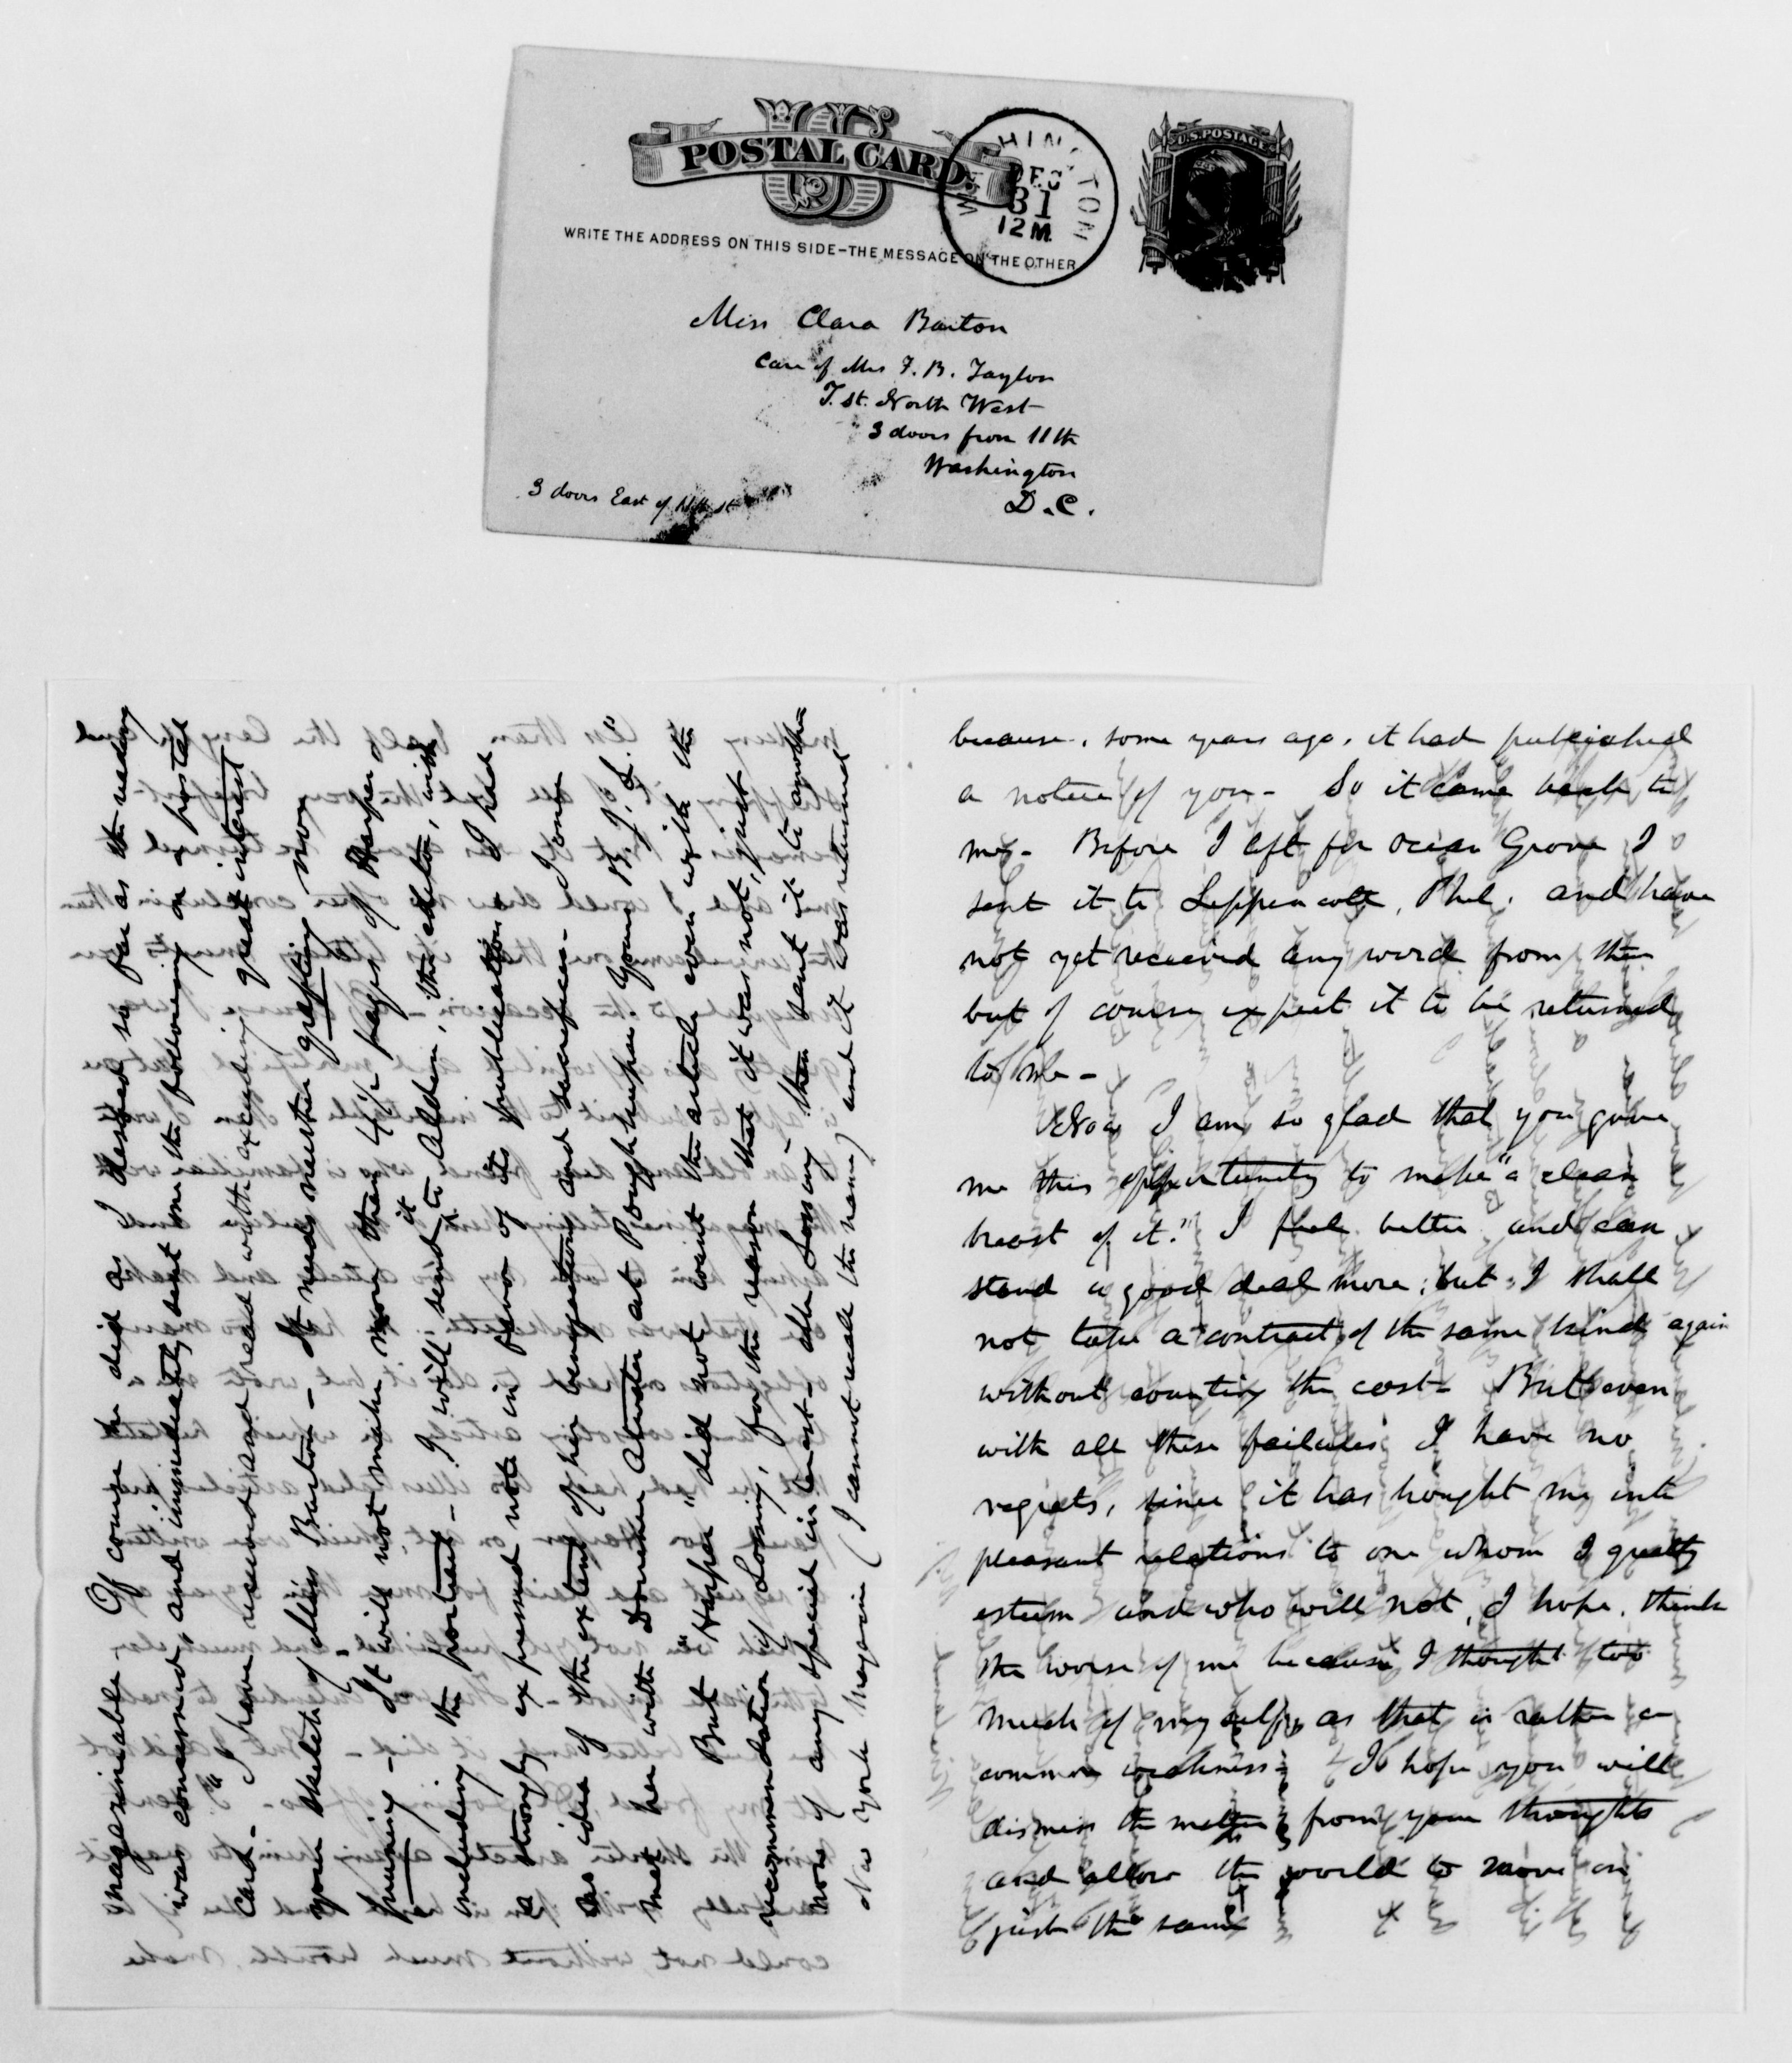 U.S. POSTAGE
US
POSTAL CARD.
WASHINGTON
DEC
31
12 M.
WRITE THE ADDRESS ON THIS SIDE–THE MESSAGE ON THE OTHER
Miss Clara Barton
Care of Mrs F. B. Taylor
T. St. North West
3 doors from 11th
Washington
D.C.
3 doors East of 11th st
imaginable. Of course he did as I desired so far as the reading
was concerned and immediately sent me the following on a postal
card. "I have received and read with exceeding great interest
your sketch of Miss Barton. It needs neither grafting nor
pruning. It will not make more than 4½ pages of Harper
including the portrait. I will send it to Alden, the editor, with
a strongly expressed note in favor of its publication. I had
no idea of the extent of her benefactions and sacrifices. I once
met her with Domine Atwater at Poughkeepsie. Yours B. J. L."
But "Harper" did not want the article even with the
recommendation of Lossing, for the reason that it was not, just
now of any special interest. Mr Lossing then sent it to another
New York Magazine (I cannot recall the name) and it was returned
because, some years ago, it had published
a notice of you. So it came back to
me. Before I left for Ocean Grove I
sent it to Lippencott, Phil. and have
not yet received any word from them
but of course expect it to be returned
to me.
Now I am so glad that you gave
me this opportunity to make "a clean
breast of it." I feel better and can
stand a good deal more, but I shall
not take a contract of the same kind again
without counting the cost. But even
with all these failures I have no
regrets, since it has brought me into
pleasant relations to one whom I greatly
esteem and who will not, I hope, think
the worse of me because I thought too
much of myself, as that is rather a
common weakness. I hope you will
dismiss the matter from your thoughts
and allow the world to move on
just the same